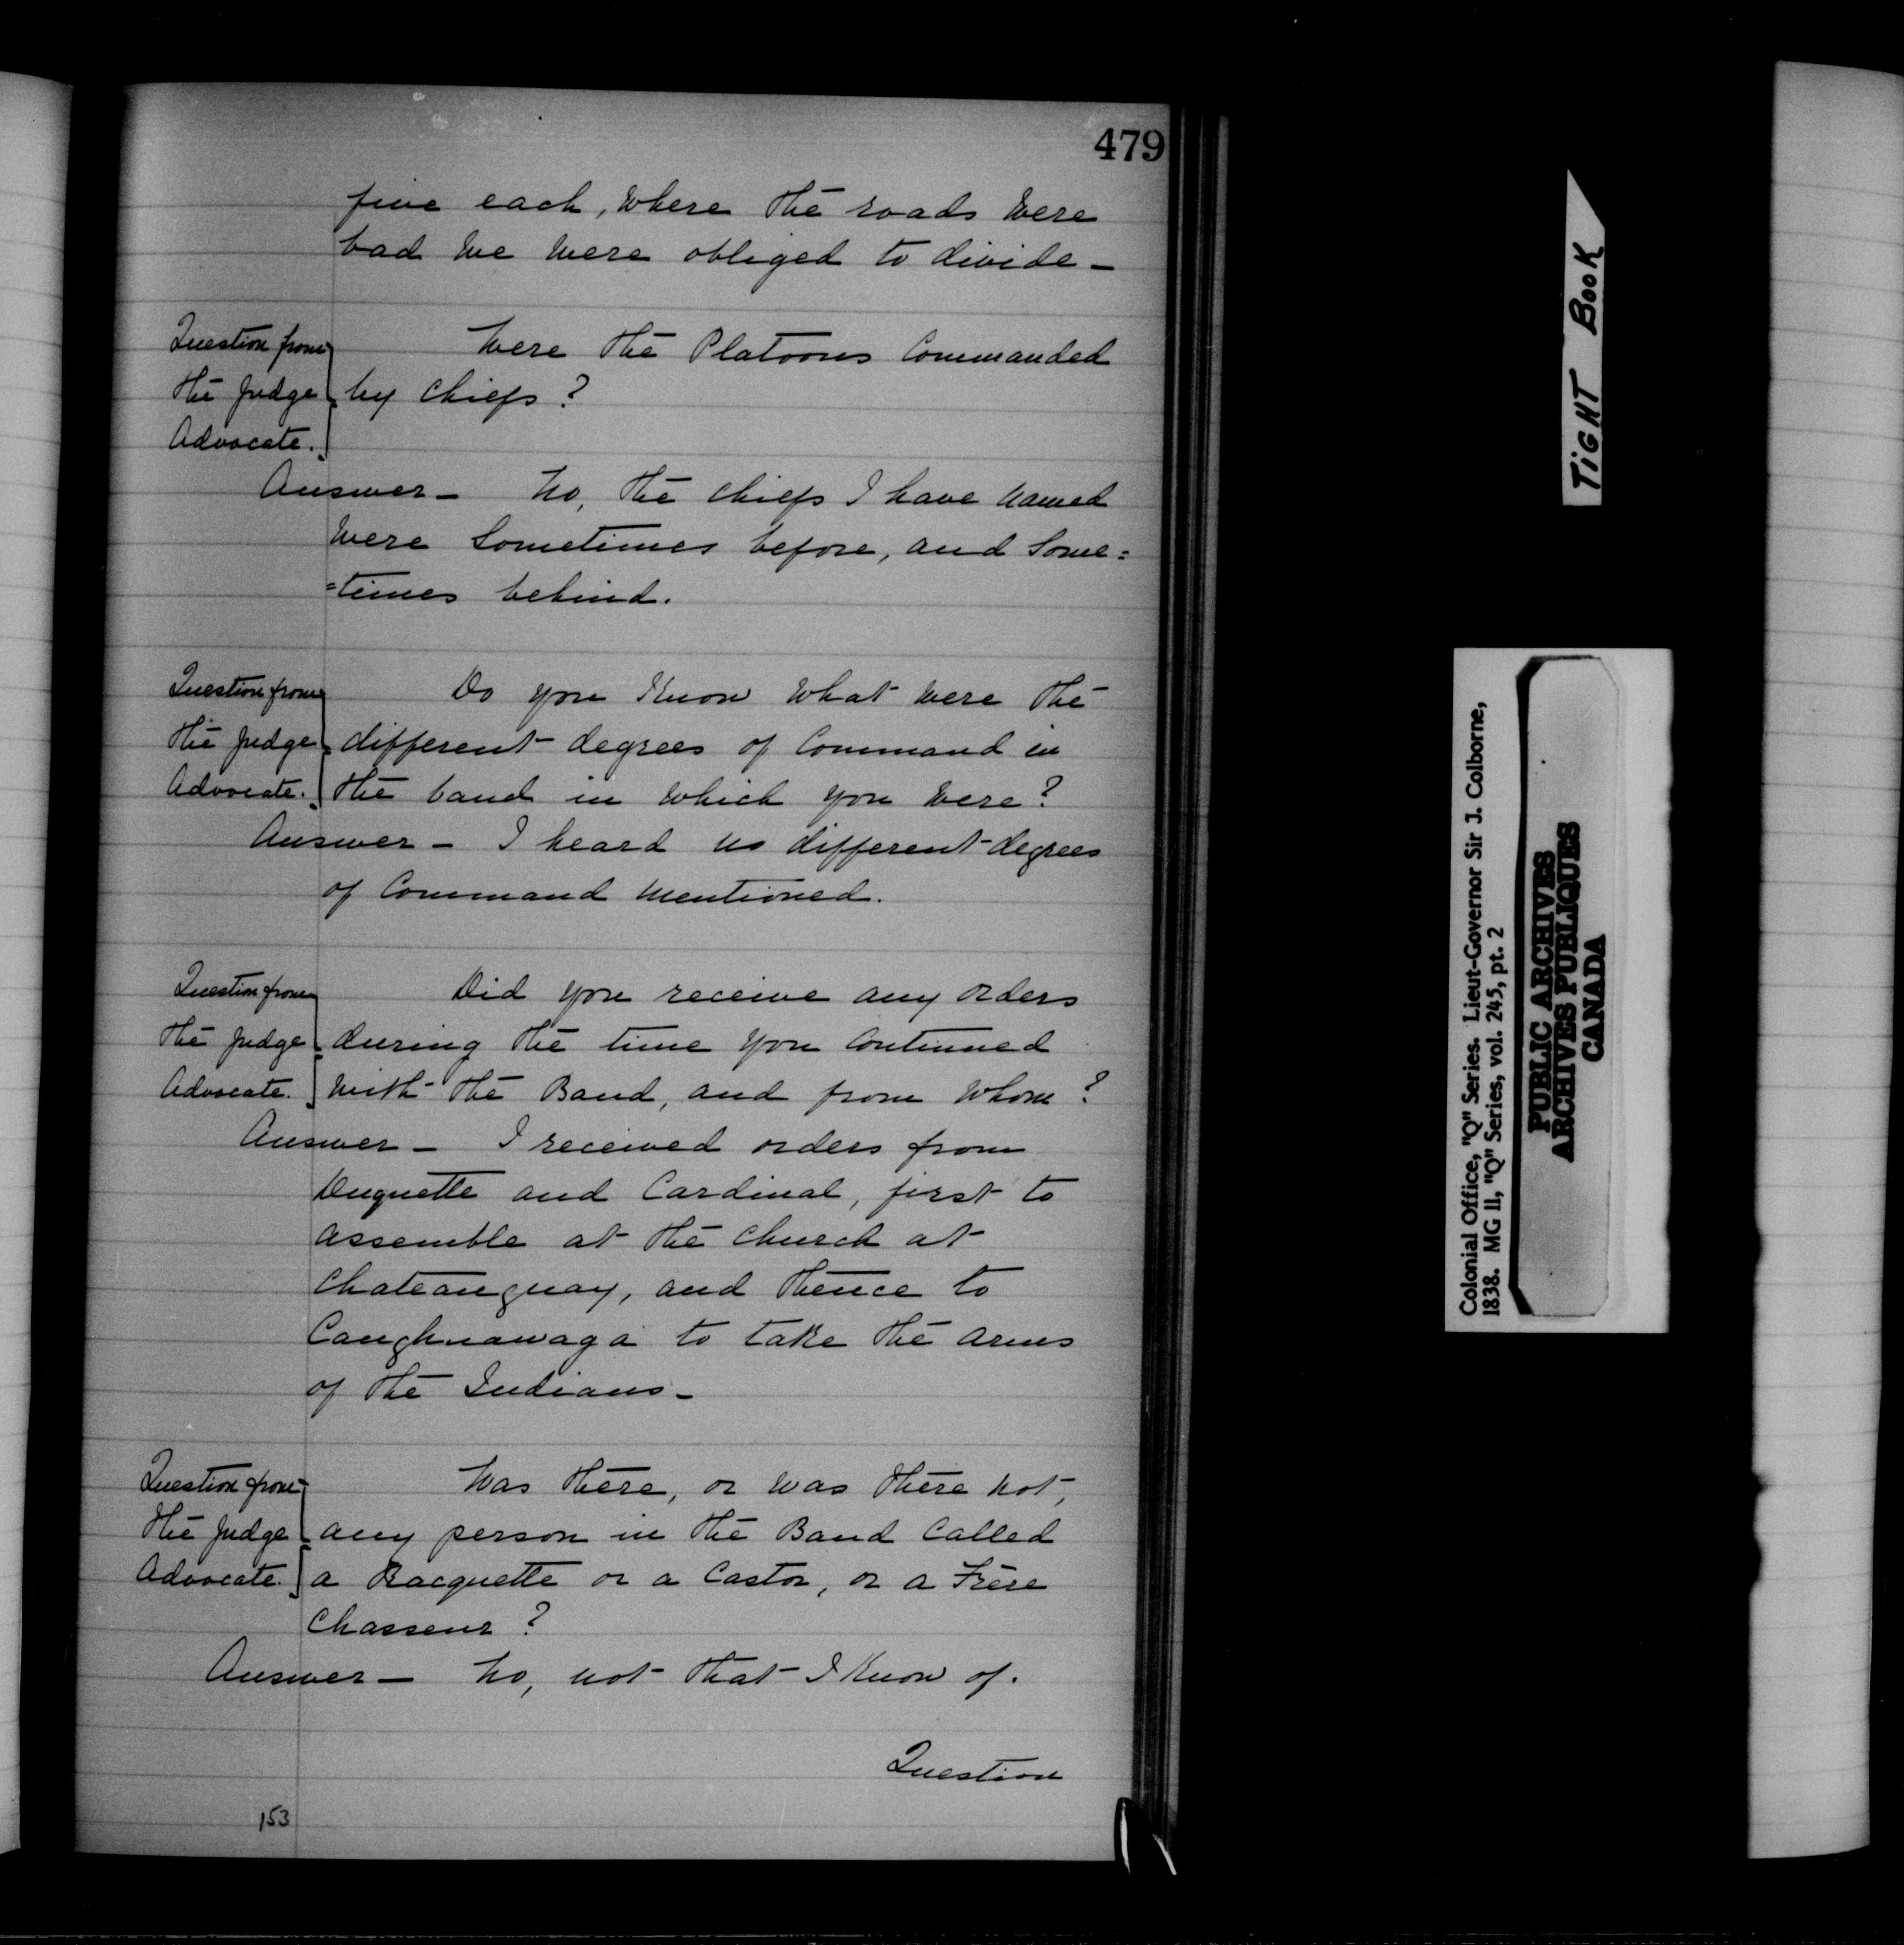 479
five each, where the roads were
bad we were obliged to divide -
Question from
the Judge
Advocate.
Were the Platoons Commanded
by Chiefs?
Answer - No, the Chiefs I have named
were Sometimes before, and Some=
=times behind.
Question from
the Judge
Advocate.
Do you Know what were the
different degrees of Command in
the band in which you were?
Answer - I heard no different degrees
of Command mentioned.
Question from
the Judge
Advocate.
Did you receive any orders
during the time you Continued
with the Band, and from whom?
Answer - I received orders from
Duquette and Cardinal, first to
assemble at the Church at
Chateauguay, and thence to
Caughnawaga to take the arms
of the Indians -
Question from
the Judge
Advocate.
Was there, or was there not,
any person in the Band Called
a Racquette or a Castor, or a Frère
Chasseur?
Answer - No, not that I Know of.
Question
153
TIGHT BOOK
Colonial Office, "Q" Series. Lieut-Governor Sir J. Colborne,
1838. MG 11, "Q" Series, vol. 245, pt. 2
PUBLIC ARCHIVES
ARCHIVES PUBLIQUES
CANADA